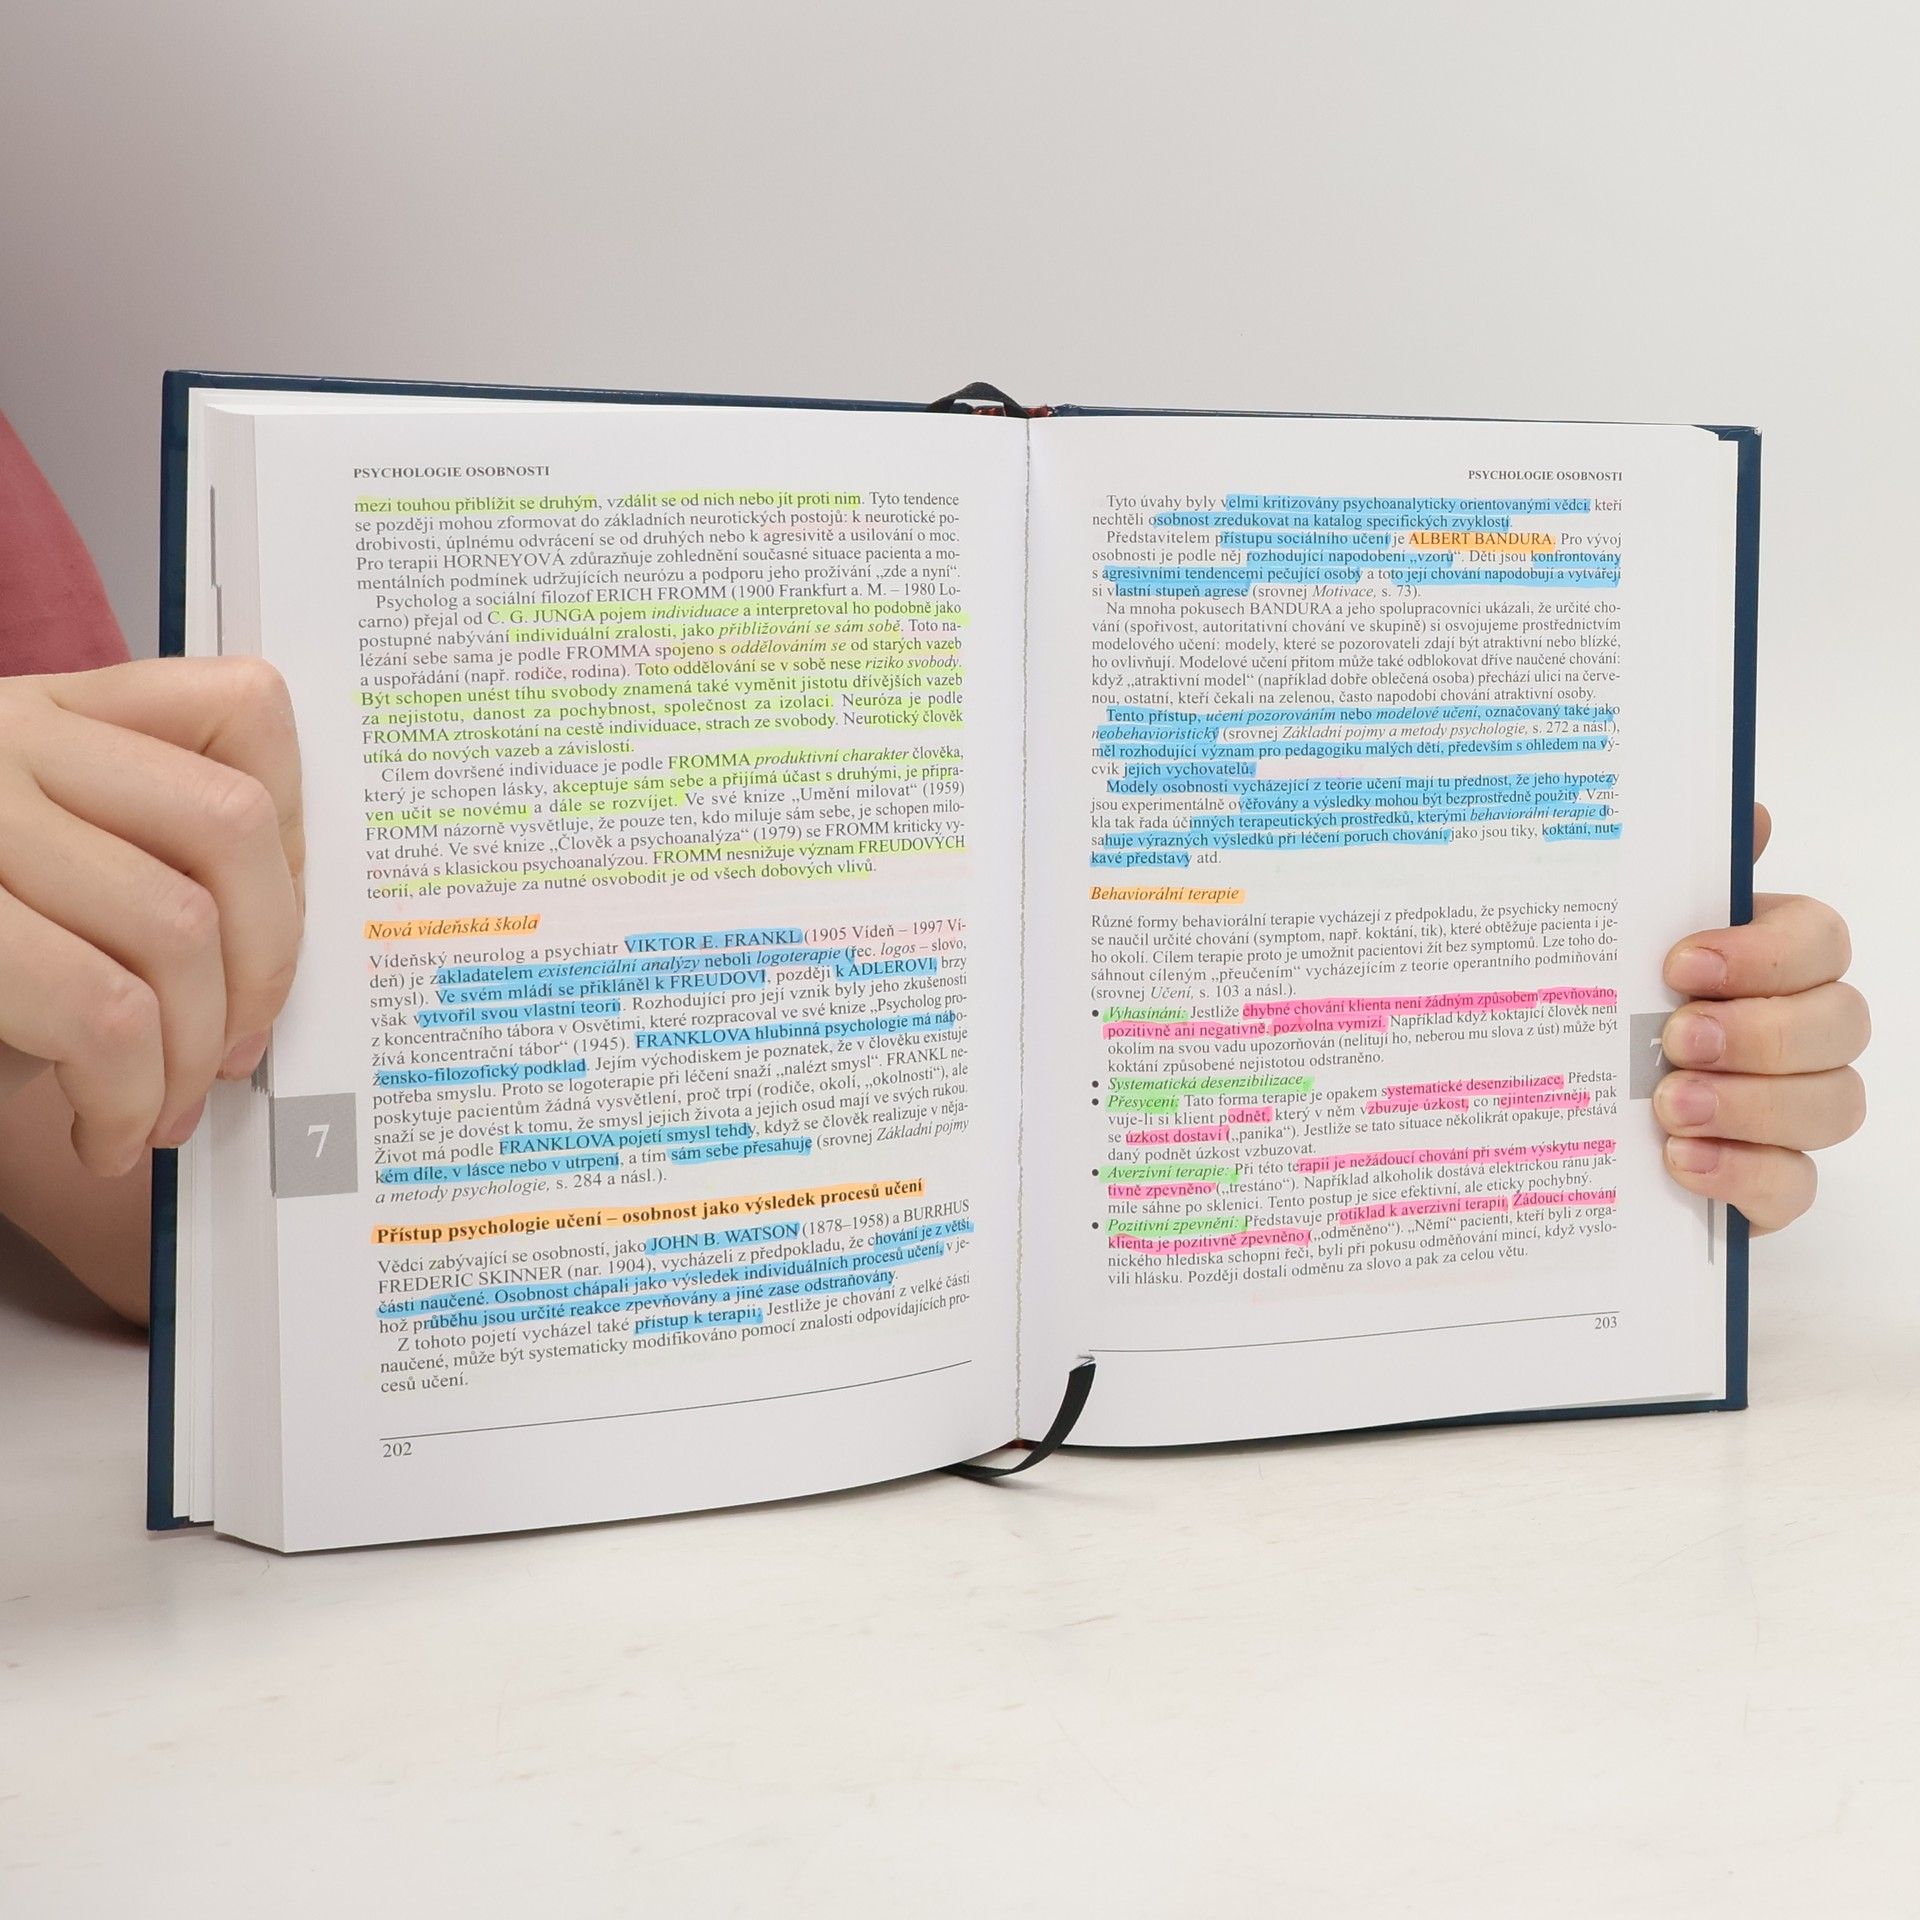 PSYCHOLOGIE OSOBNOSTI
mezi touhou přiblížit se druhým, vzdálit se od nich nebo jít proti nim. Tyto tendence
se později mohou zformovat do základních neurotických postojů: k neurotické po-
drobivosti, úplnému odvrácení se od druhých nebo k agresivitě a usilování o moc.
Pro terapii HORNEYOVÁ zdůrazňuje zohlednění současné situace pacienta a mo-
mentálních podmínek udržujících neurózu a podporu jeho prožívání „zde a nyní“.
Psycholog a sociální filozof ERICH FROMM (1900 Frankfurt a. M. – 1980 Lo-
carno) přejal od C. G. JUNGA pojem individuace a interpretoval ho podobně jako
postupné nabývání individuální zralosti, jako přibližování se sám sobě. Toto na-
lézání sebe sama je podle FROMMA spojeno s oddělováním se od starých vazeb
a uspořádání (např. rodiče, rodina). Toto oddělování se v sobě nese riziko svobody.
Být schopen unést tíhu svobody znamená také vyměnit jistotu dřívějších vazeb
za nejistotu, danost za pochybnost, společnost za izolaci. Neuróza je podle
FROMMA ztroskotání na cestě individuace, strach ze svobody. Neurotický člověk
utíká do nových vazeb a závislostí.
Cílem dovršené individuace je podle FROMMA produktivní charakter člověka,
který je schopen lásky, akceptuje sám sebe a přijímá účast s druhými, je připra-
ven učit se novému a dále se rozvíjet. Ve své knize „Umění milovat“ (1959)
FROMM názorně vysvětluje, že pouze ten, kdo miluje sám sebe, je schopen milo-
vat druhé. Ve své knize „Člověk a psychoanalýza“ (1979) se FROMM kriticky vy-
rovnává s klasickou psychoanalýzou. FROMM nesnižuje význam FREUDOVÝCH
teorií, ale považuje za nutné osvobodit je od všech dobových vlivů.
Nová vídeňská škola
Vídeňský neurolog a psychiatr VIKTOR E. FRANKL (1905 Vídeň – 1997 Ví-
deň) je zakladatelem existenciální analýzy neboli logoterapie (řec. logos – slovo,
smysl). Ve svém mládí se přikláněl k FREUDOVI, později k ADLEROVI, brzy
však vytvořil svou vlastní teorii. Rozhodující pro její vznik byly jeho zkušenosti
z koncentračního tábora v Osvětimi, které rozpracoval ve své knize „Psycholog pro-
žívá koncentrační tábor“ (1945). FRANKLOVA hlubinná psychologie má nábo-
žensko-filozofický podklad. Jejím východiskem je poznatek, že v člověku existuje
potřeba smyslu. Proto se logoterapie při léčení snaží „nalézt smysl“. FRANKL ne-
poskytuje pacientům žádná vysvětlení, proč trpí (rodiče, okolí, „okolnosti“), ale
snaží se je dovést k tomu, že smysl jejich života a jejich osud mají ve svých rukou.
Život má podle FRANKLOVA pojetí smysl tehdy, když se člověk realizuje v něja-
kém díle, v lásce nebo v utrpení, a tím sám sebe přesahuje (srovnej Základní pojmy
a metody psychologie, s. 284 a násl.).
Přístup psychologie učení – osobnost jako výsledek procesů učení
Vědci zabývající se osobností, jako JOHN B. WATSON (1878–1958) a BURRHUS
FREDERIC SKINNER (nar. 1904), vycházeli z předpokladu, že chování je z větší
části naučené. Osobnost chápali jako výsledek individuálních procesů učení, v je-
hož průběhu jsou určité reakce zpevňovány a jiné zase odstraňovány.
Z tohoto pojetí vycházel také přístup k terapii: Jestliže je chování z velké části
naučené, může být systematicky modifikováno pomocí znalosti odpovídajících pro-
cesů učení.
202
7
PSYCHOLOGIE OSOBNOSTI
Tyto úvahy byly velmi kritizovány psychoanalyticky orientovanými vědci, kteří
nechtěli osobnost zredukovat na katalog specifických zvyklostí.
Představitelem přístupu sociálního učení je ALBERT BANDURA. Pro vývoj
osobnosti je podle něj rozhodující napodobení „vzorů“. Děti jsou konfrontovány
s agresivními tendencemi pečující osoby a toto její chování napodobují a vytvářejí
si vlastní stupeň agrese (srovnej Motivace, s. 73).
Na mnoha pokusech BANDURA a jeho spolupracovníci ukázali, že určité cho-
vání (spořivost, autoritativní chování ve skupině) si osvojujeme prostřednictvím
modelového učení: modely, které se pozorovateli zdají být atraktivní nebo blízké,
ho ovlivňují. Modelové učení přitom může také odblokovat dříve naučené chování:
když „atraktivní model“ (například dobře oblečená osoba) přechází ulici na červe-
nou, ostatní, kteří čekali na zelenou, často napodobí chování atraktivní osoby.
Tento přístup, učení pozorováním nebo modelové učení, označovaný také jako
neobehavioristický (srovnej Základní pojmy a metody psychologie, s. 272 a násl.),
měl rozhodující význam pro pedagogiku malých dětí, především s ohledem na vý-
cvik jejich vychovatelů.
Modely osobnosti vycházející z teorie učení mají tu přednost, že jeho hypotézy
jsou experimentálně ověřovány a výsledky mohou být bezprostředně použity. Vzni-
kla tak řada účinných terapeutických prostředků, kterými behaviorální terapie do-
sahuje výrazných výsledků při léčení poruch chování, jako jsou tiky, koktání, nut-
kavé představy atd.
Behaviorální terapie
Různé formy behaviorální terapie vycházejí z předpokladu, že psychicky nemocný
se naučil určité chování (symptom, např. koktání, tik), které obtěžuje pacienta i je-
ho okolí. Cílem terapie proto je umožnit pacientovi žít bez symptomů. Lze toho do-
sáhnout cíleným „přeučením“ vycházejícím z teorie operantního podmiňování
(srovnej Učení, s. 103 a násl.).
• Vyhasínání: Jestliže chybné chování klienta není žádným způsobem zpevňováno,
pozitivně ani negativně, pozvolna vymizí. Například když koktající člověk není
okolím na svou vadu upozorňován (nelitují ho, neberou mu slova z úst) může být
koktání způsobené nejistotou odstraněno.
• Systematická desenzibilizace.
• Přesycení: Tato forma terapie je opakem systematické desenzibilizace. Předsta-
vuje-li si klient podnět, který v něm vzbuzuje úzkost, co nejintenzivněji, pak
se úzkost dostaví („panika“). Jestliže se tato situace několikrát opakuje, přestává
daný podnět úzkost vzbuzovat.
• Averzivní terapie: Při této terapii je nežádoucí chování při svém výskytu nega-
tivně zpevněno („trestáno“). Například alkoholik dostává elektrickou ránu jak-
mile sáhne po sklenici. Tento postup je sice efektivní, ale eticky pochybný.
• Pozitivní zpevnění: Představuje protiklad k averzivní terapii. Žádoucí chování
klienta je pozitivně zpevněno („odměněno“). „Němí“ pacienti, kteří byli z orga-
nického hlediska schopni řeči, byli při pokusu odměňování mincí, když vyslo-
vili hlásku. Později dostali odměnu za slovo a pak za celou větu.
203
7